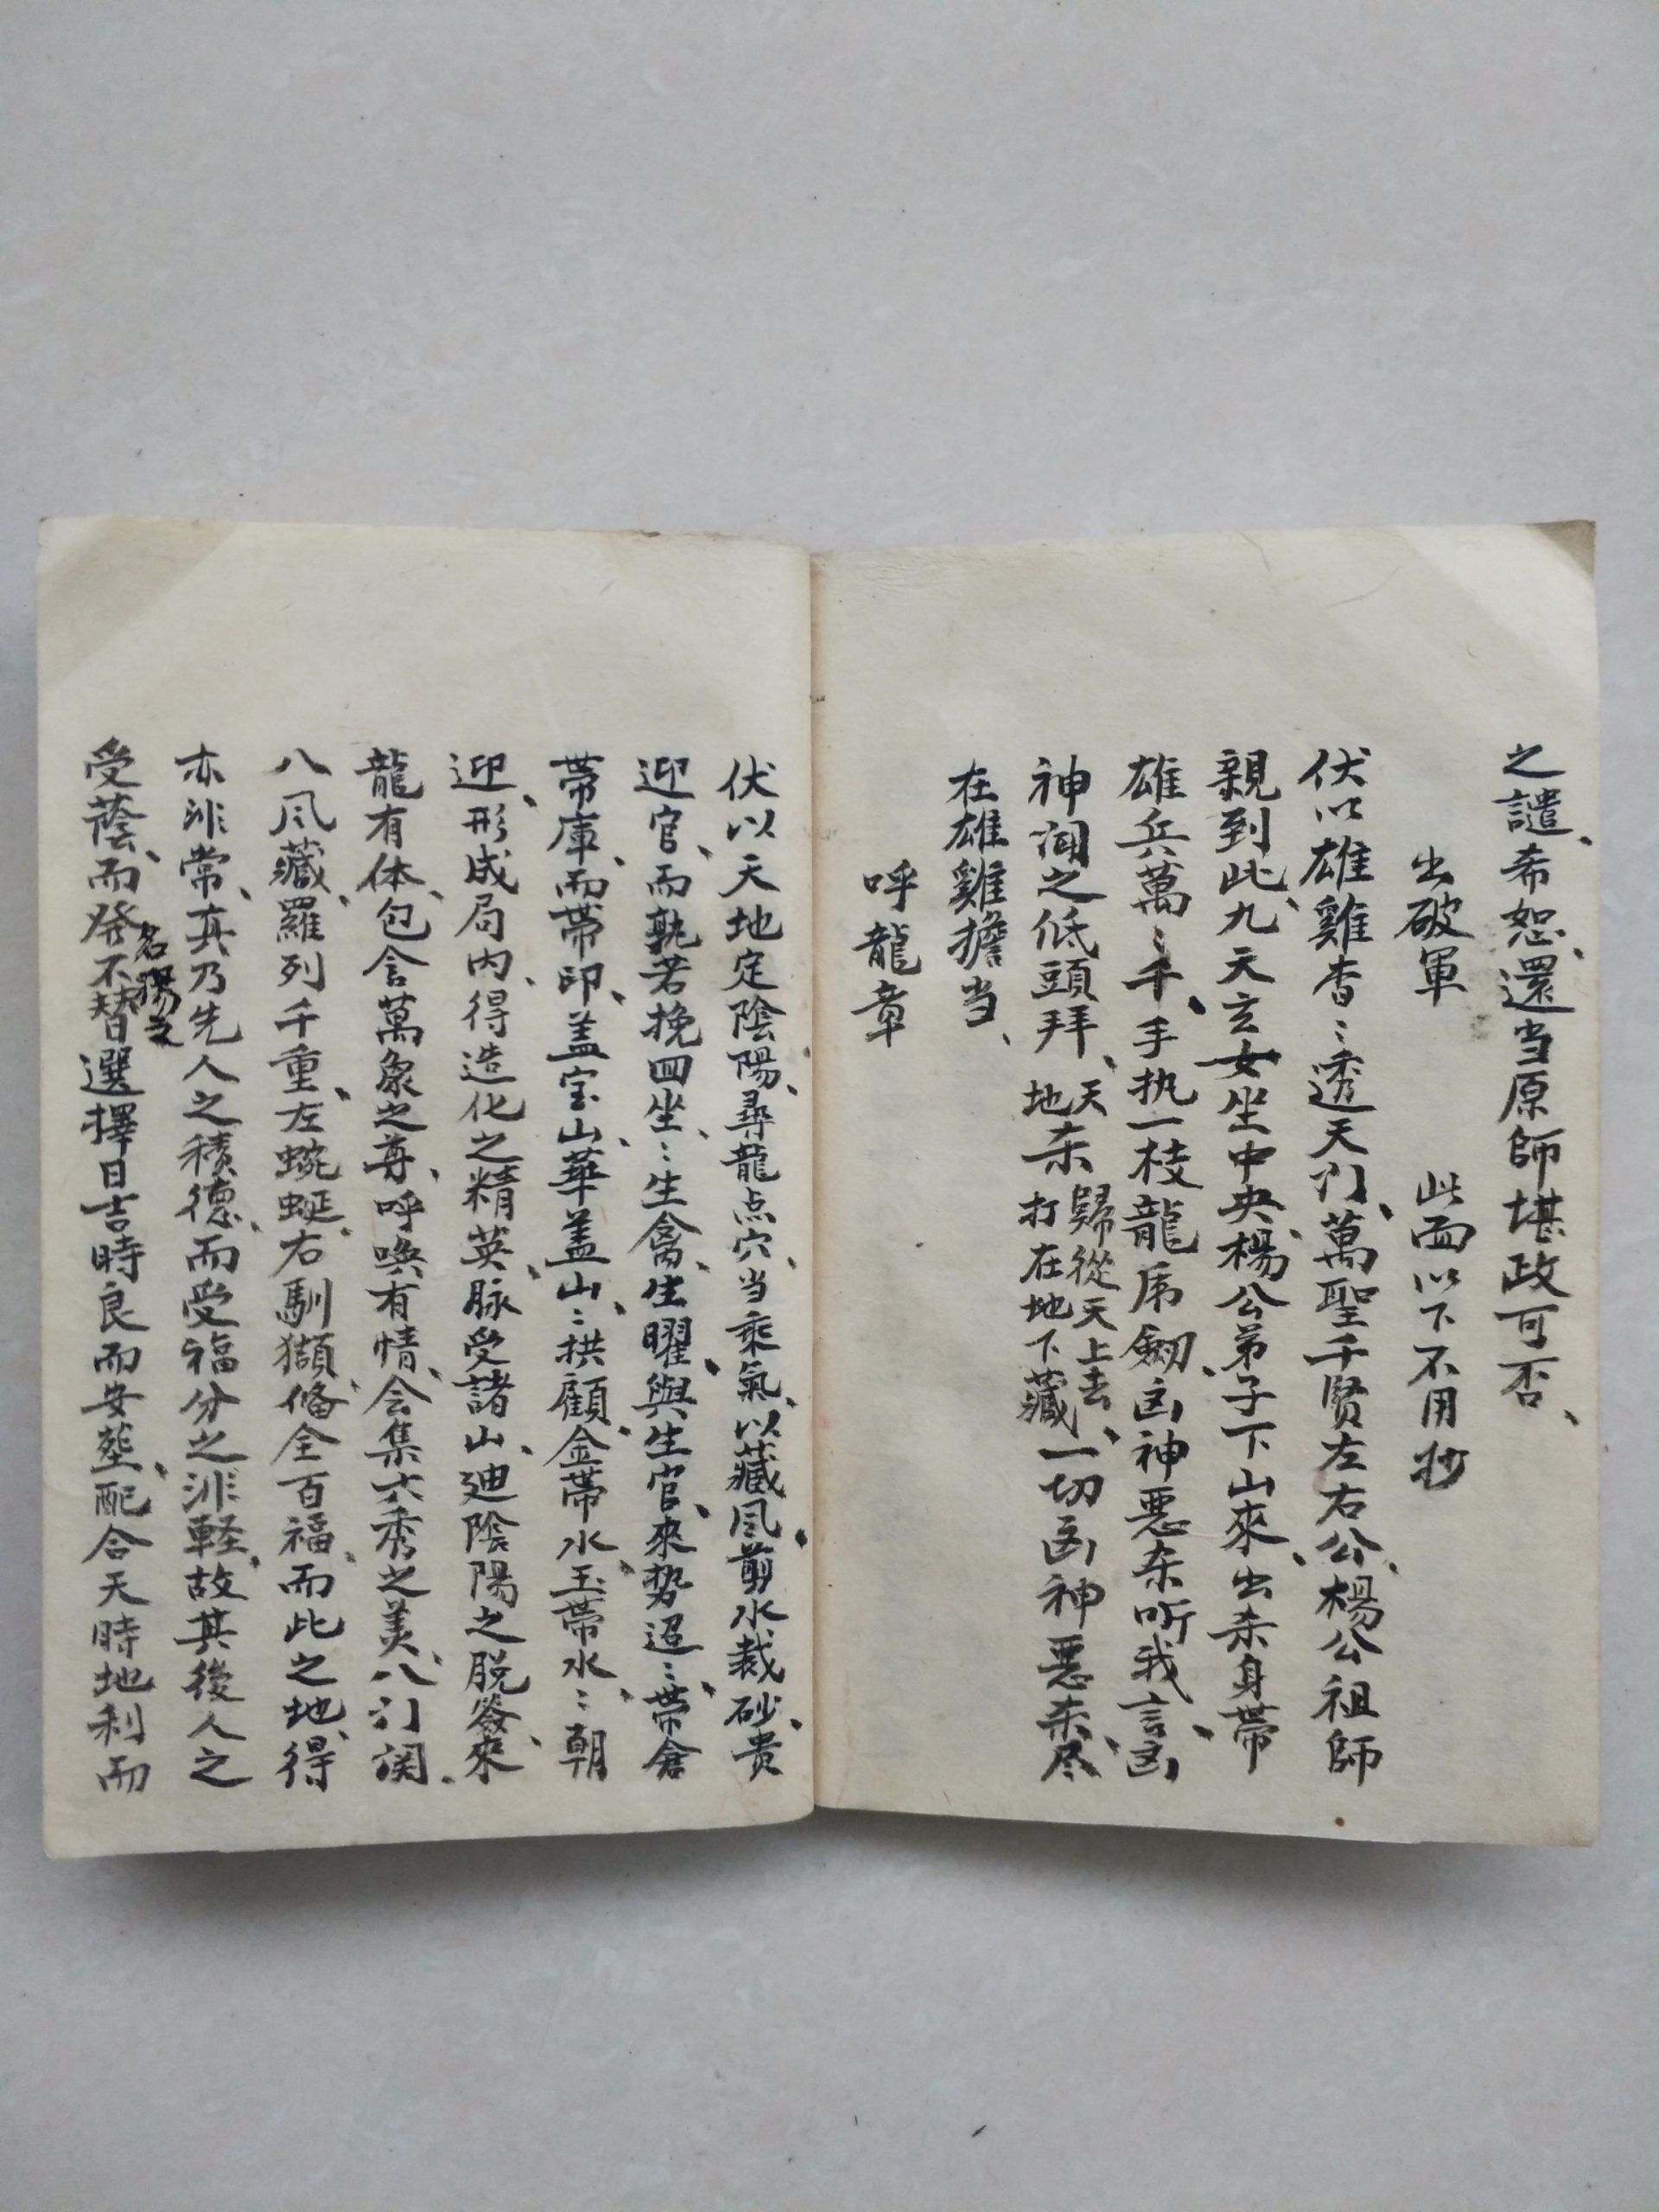 之譴、希恕、還当原師堪政可否、
出破軍　此面以下不用抄
伏以雄雞杳〻透天门、萬聖千贤左右公、楊公祖師
親到此、九天玄女坐中央、楊公弟子下山來、出杀身帶
雄兵萬〻千、手执一枝龍虎劒、凶神惡杀听我言、凶
神闻之低頭拜、天杀歸從天上去、地杀打在地下藏、一切凶神惡杀尽、
在雄雞擔当、
呼龍章
伏以天地定陰陽、尋龍点穴、当乘氣、以藏风、剪水裁砂、贵
迎官、而孰若挽四坐〻、生禽、生曜、與生官、來势迢〻、帶倉
帶庫、而帶印、盖宝山、華盖山〻、拱顧、金帶水、玉帶水〻、朝
迎、形成局内、得造化之精英、脉受諸山、迪陰陽之脱、來
龍有体、包含萬象之尊、呼唤有情、会集六秀之美、八门関、
八风藏、羅列千重、左蜿蜒、右馴獺、俻全百福、而此之地、得
亦非常、真乃先人之積德、而受福分之非軽、故其後人之
受蔭、而發不替選擇日吉時良而安塟、配合天時地利而
名揚之